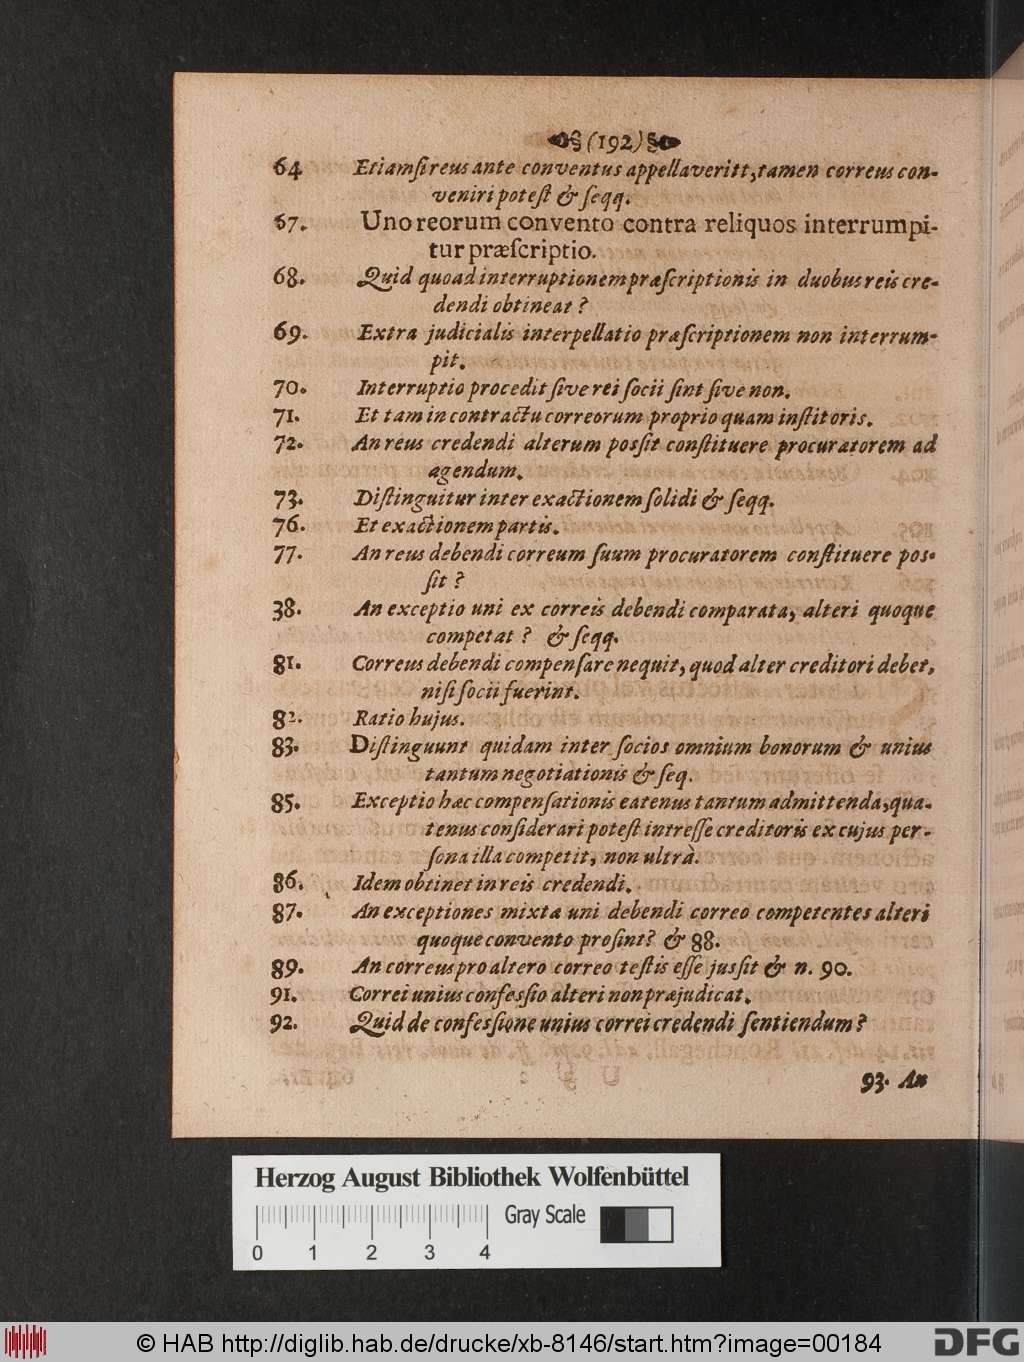 (192)
64 Etiamſi reus ante conventus appellaveritt, tamen correus con-
veniri poteſt & ſeqq.
67. Uno reorum convento contra reliquos interrumpi-
tur præſcriptio.
68. Quid quoad interruptionem præſcriptionis in duobus reis cre-
dendi obtineat?
69. Extra judicialis interpellatio præſcriptionem non interrum-
pit.
70. Interruptio procedit ſive rei ſocii ſint ſive non.
71. Et tam in contractu correorum proprio quam inſtitoris.
72. An reus credendi alterum posſit conſtituere procuratorem ad
agendum.
73. Diſtinguitur inter exactionem ſolidi & ſeqq.
76. Et exactionem partis.
77. An reus debendi correum ſuum procuratorem conſtituere pos-
ſit?
38. An exceptio uni ex correis debendi comparata, alteri quoque
competat? & ſeqq.
81. Correus debendi compenſare nequit, quod alter creditori debet,
niſi ſocii fuerint.
82. Ratio hujus.
83. Diſtinguunt quidam inter ſocios omnium bonorum & unius
tantum negotiationis & ſeq.
85. Exceptio hæc compenſationis eatenus tantum admittenda, qua-
tenus conſiderari poteſt intreſſe creditoris ex cujus per-
ſona illa competit, non ultrà.
86. Idem obtinet in reis credendi.
87. An exceptiones mixta uni debendi correo competentes alteri
quoque convento proſint? & 88.
89. An correus pro altero correo teſtis eſſe jusſit & n. 90.
91. Correi unius confesſio alteri non præjudicat.
92. Quid de confesſione unius correi credendi ſentiendum?
93. An
Herzog August Bibliothek Wolfenbüttel
Gray Scale
0 1 2 3 4
© HAB http://diglib.hab.de/drucke/xb-8146/start.htm?image=00184
DFG